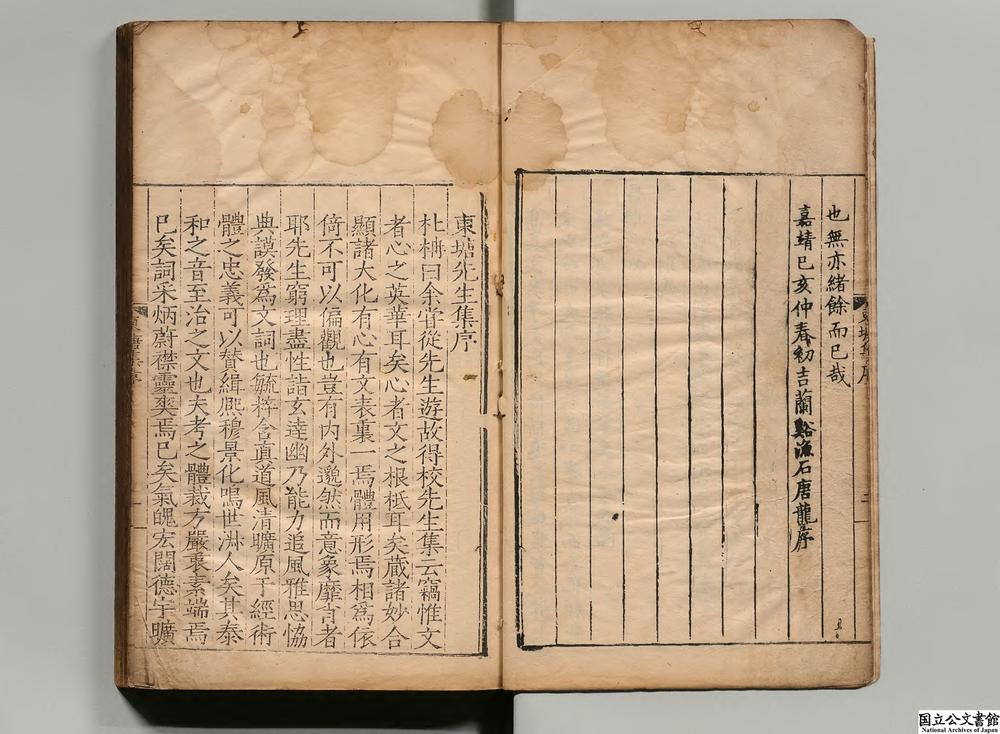 也無亦緒餘而已哉
嘉靖已亥仲春初吉蘭谿漁石唐龍序
東塘先生集序
杜柟曰余嘗從先生遊故得校先生集云竊惟文
者心之英華耳矣心者文之根柢耳矣蔵諸妙合
顯諸大化有心有文表裏一焉體用形焉相爲依
倚不可以偏觀也豈有内外邈然而意象靡肖者
耶先生窮理盡性詣玄達幽乃能力追風雅思恊
典謨發爲文詞也毓粹含直道風清曠原于經術
體之忠義可以賛緝熈穆景化鳴世淋人矣其泰
和之音至治之文也夫考之體裁方嚴秉素端焉
巳矣詞采炳蔚襟靈爽焉巳矣氣魄宏闊德宇曠
国立公文書館
National Archives of Japan